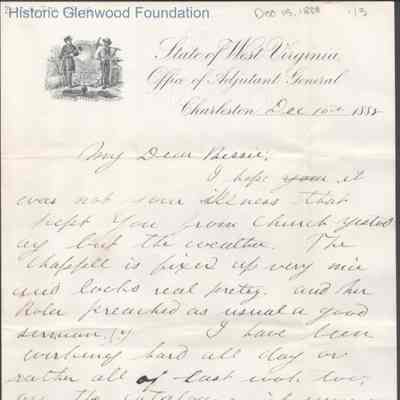 Historic Glenwood Foundation
Dec 10, 1888
1/3
State of West Virginia,
Office of Adjutant General
Charleston Dec 10th 1888
My Dear Bessie;
I hope your it
was not your illness that
kept you from Church yesterd
ay but the weather. The
Chappell is fixed up very nice
and looks real pretty. and
preached as usual a good
sermon. I have been
working hard all day or
rather all of last